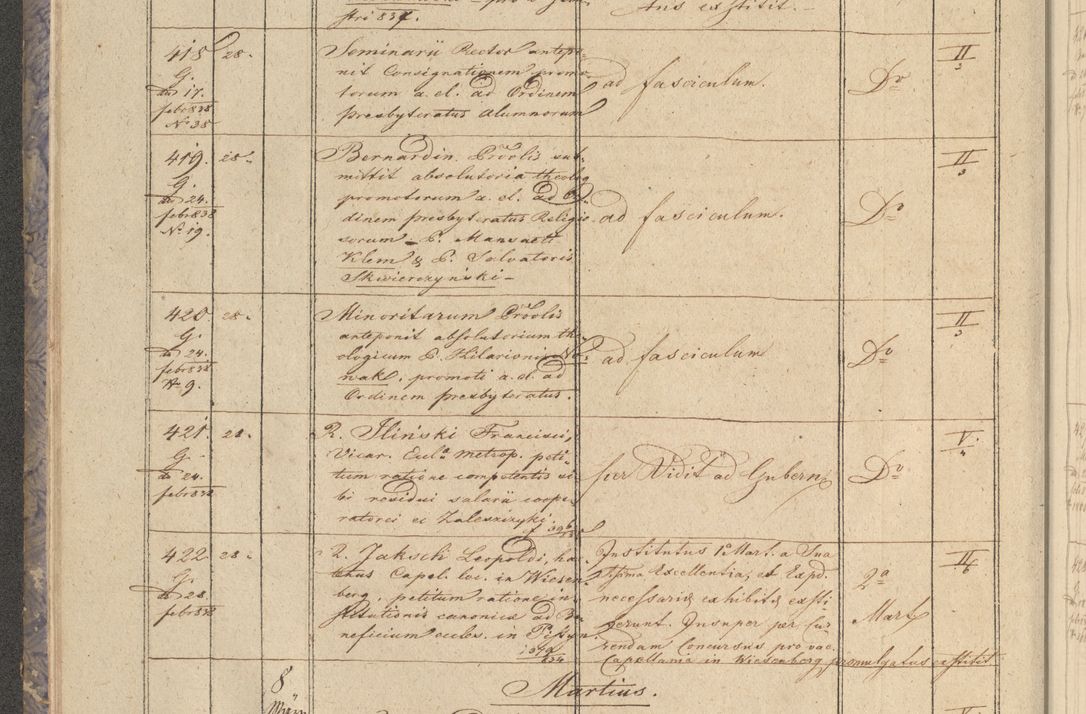 stri 837.
Ans exstitit.
418 28.
G.
do 17.
febr 838
No 38
Seminarii Rector antepo-
nit Consignationem promo-
torum a. el. ad Ordinem
presbyteratus Alumnorum
ad fasciculum.
Do
II
3
419. 28.
G.
do 24.
febr 838
No 19.
Bernardin. Provlis sub-
mittit absolutoria theolog
promotorum a. el. ad Or-
dinem presbyteratus Religio-
sorum P. Mansueti
Klem & P. Salvatoris
Skwierczyński –
ad fasciculum.
Do
II
3
420. 28.
G.
do 24.
febr 838
No 9.
Minoritarum Provlis
anteponit absolutorium th-
ologicum P. Hilarionis No-
wak, promoti a. el. ad
Ordinem presbyteratus.
ad fasciculum
Do
II
3
421. 28.
G.
do 24.
febr 838
R. Iliński Francisci,
Vicar. Eccl. metrop. peti-
tum ratione competentis si-
bi residui salarii coope-
ratorei ex Zaleszczyki
per Vidit ad Gubern
Do
V.
422 28.
G.
do 28.
febr 838
R. Jaksch Leopoldi, hac-
tenus Capel. loc. in Wiesen-
berg, petitum ratione in-
stitutionis canonicae ad Be-
neficium eccles. in
Institutus 1a Mart. a Sua
Excellentia, et Exped.
necessariis exhibitis exsti-
terunt. Insuper per Cur-
rendam Concursus pro vac.
Capellania in Wiesenberg promulgatus exstitit
2a
Mart
III
6
8
Martius.